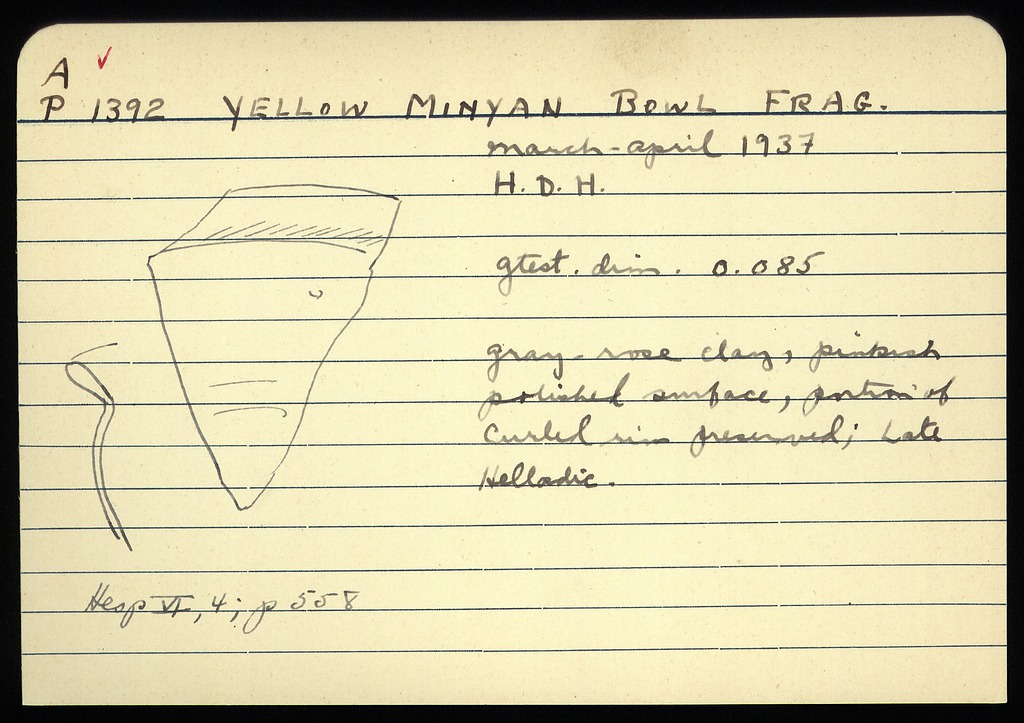 A
P 1392 YELLOW MINYAN BOWL FRAG.
march-april 1937
H. D. H.
gtest. dim. 0.085
gray-rose clay, pinkish
polished surface, portion of
curled rim preserved; Late
Helladic.
Hesp VI, 4; p 558